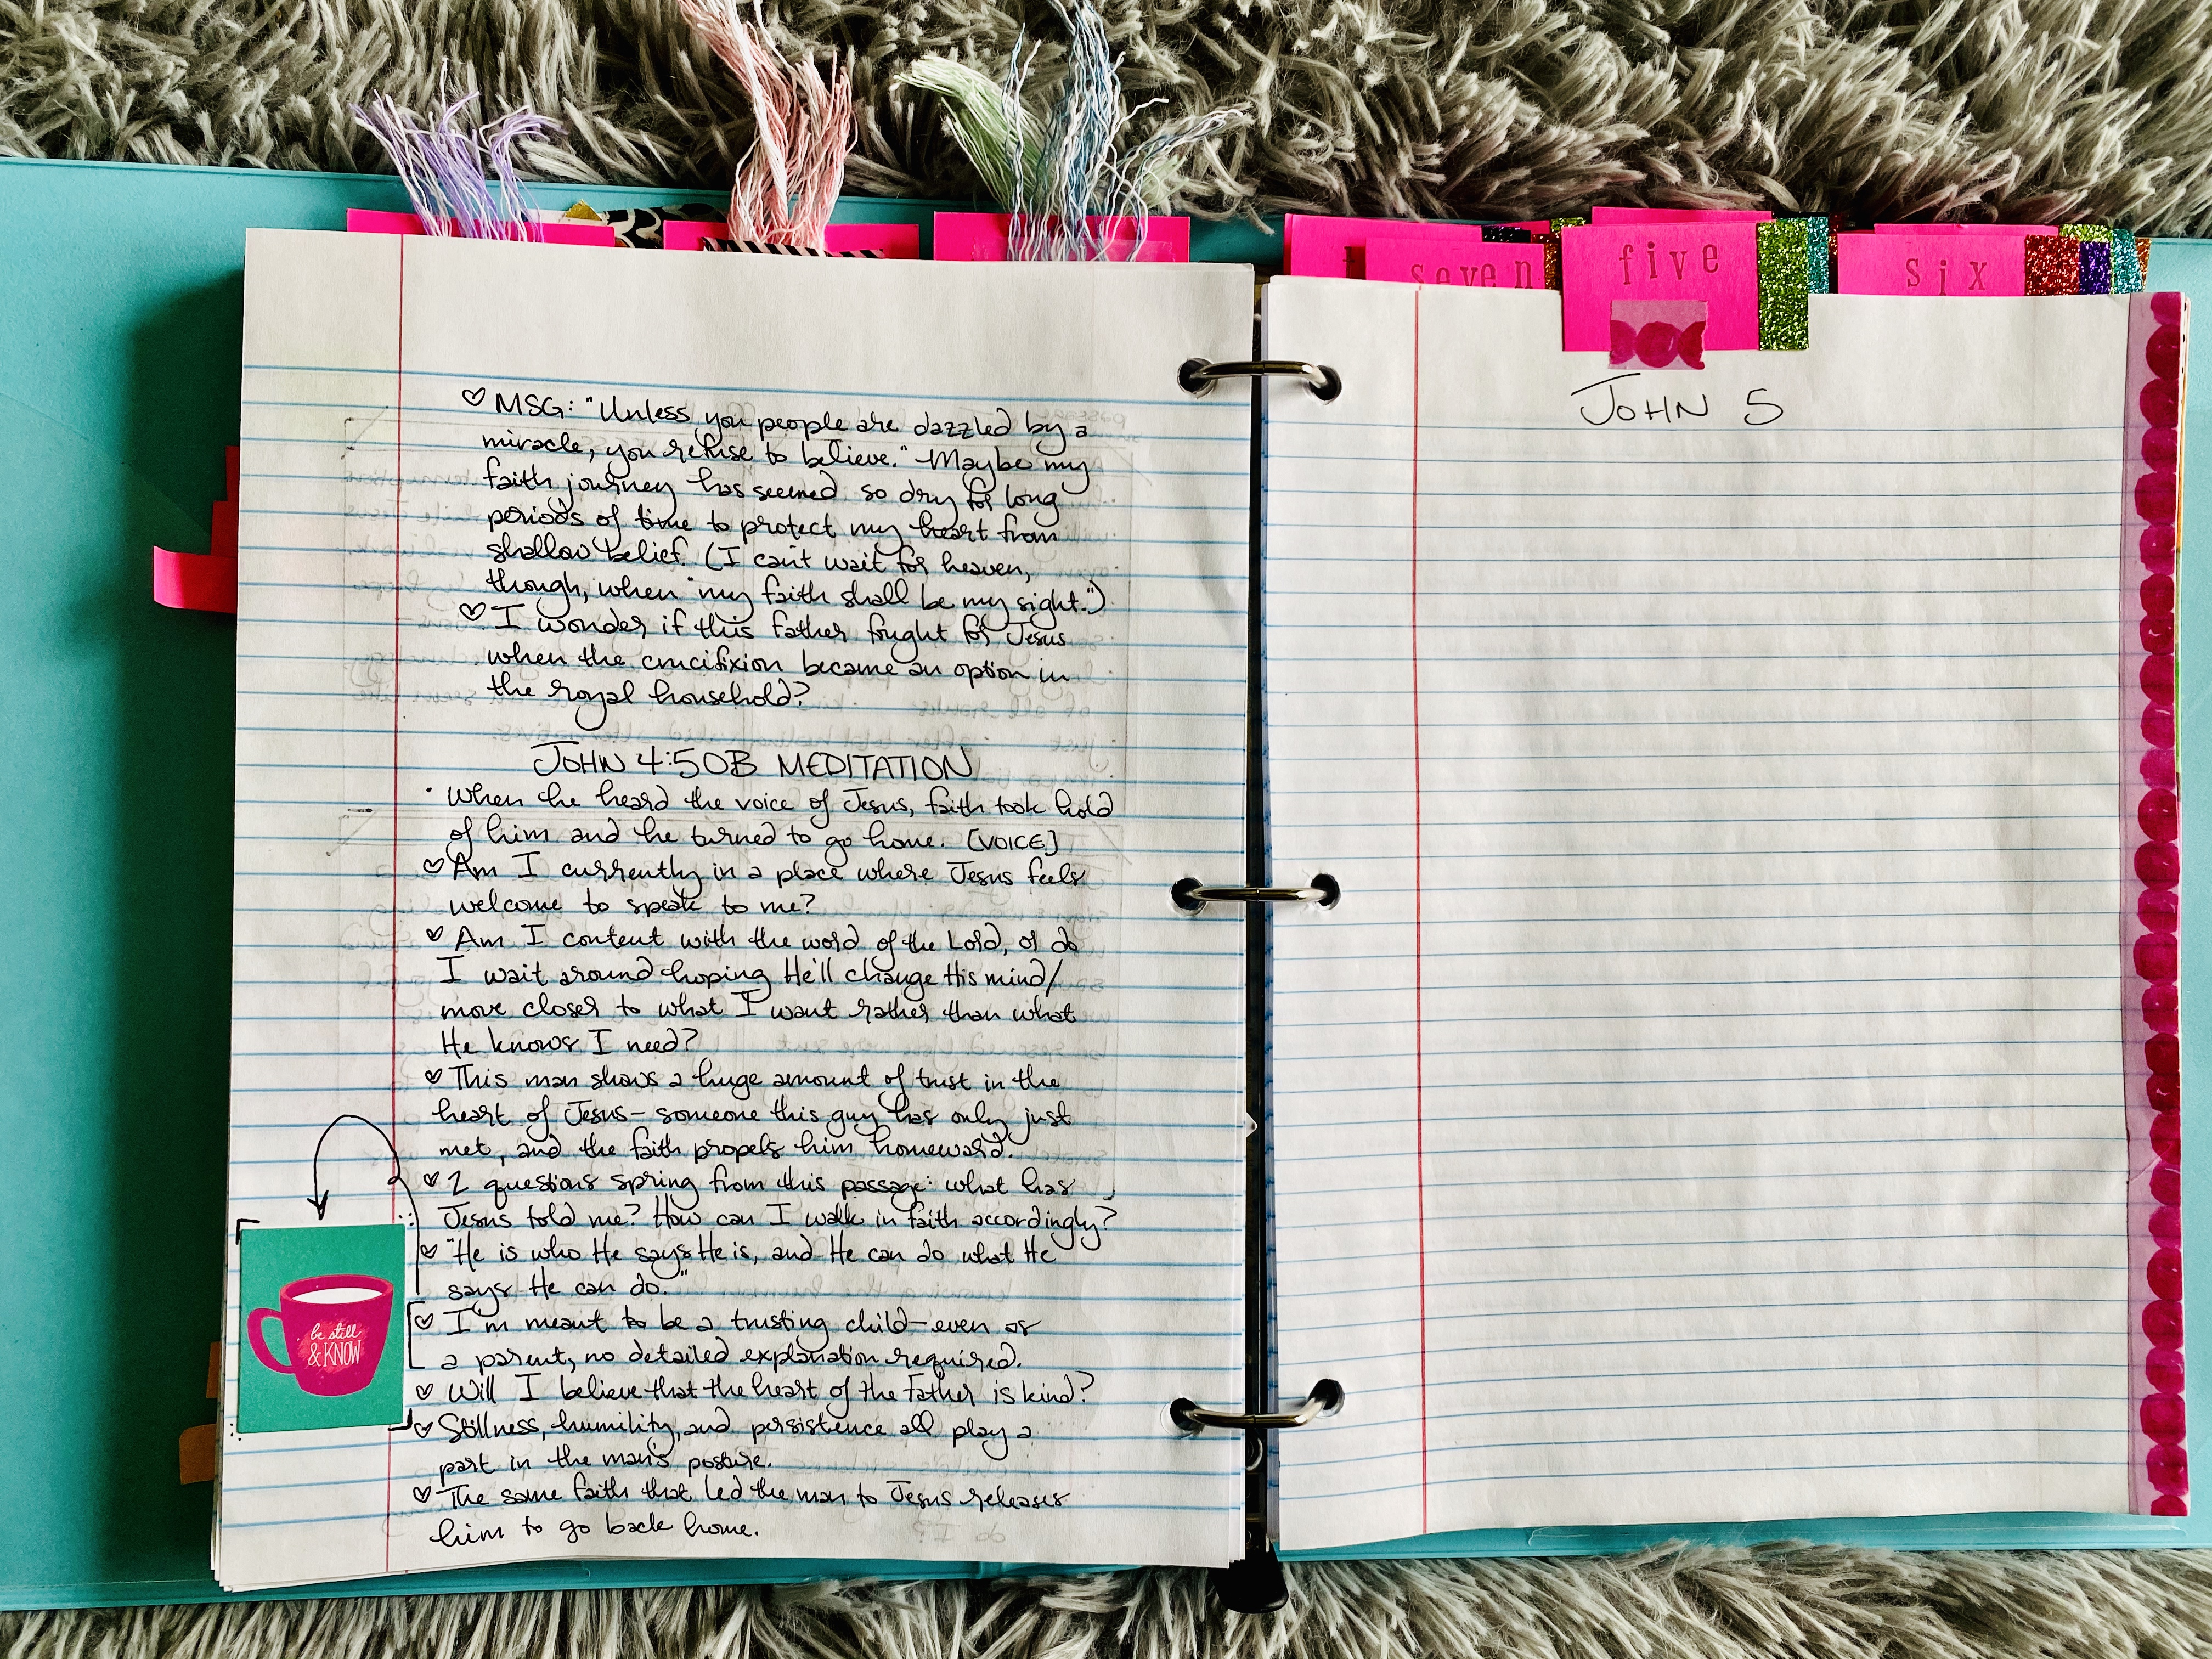 seven
five
six
♡ MSG: "Unless you people are dazzled by a
miracle, you refuse to believe." Maybe my
faith journey has seemed so dry for long
periods of time to protect my heart from
shallow belief. (I can't wait for heaven,
though, when "my faith shall be my sight.")
♡ I wonder if this father fought for Jesus
when the crucifixion became an option in
the royal household?
JOHN 4:50B MEDITATION
· When he heard the voice of Jesus, faith took hold
of him and he turned to go home. [VOICE]
♡ Am I currently in a place where Jesus feels
welcome to speak to me?
♡ Am I content with the word of the Lord, or do
I wait around hoping He'll change His mind/
move closer to what I want rather than what
He knows I need?
♡ This man shows a huge amount of trust in the
heart of Jesus– someone this guy has only just
met, and the faith propels him homeward.
♡ 2 questions spring from this passage: what has
Jesus told me? How can I walk in faith accordingly?
♡ "He is who He says He is, and He can do what He
says He can do."
♡ I'm meant to be a trusting child–even as
a parent, no detailed explanation required.
♡ Will I believe that the heart of the Father is kind?
♡ Stillness, humility, and persistence all play a
part in the man's posture.
♡ The same faith that led the man to Jesus releases
him to go back home.
be still
& KNOW
JOHN 5